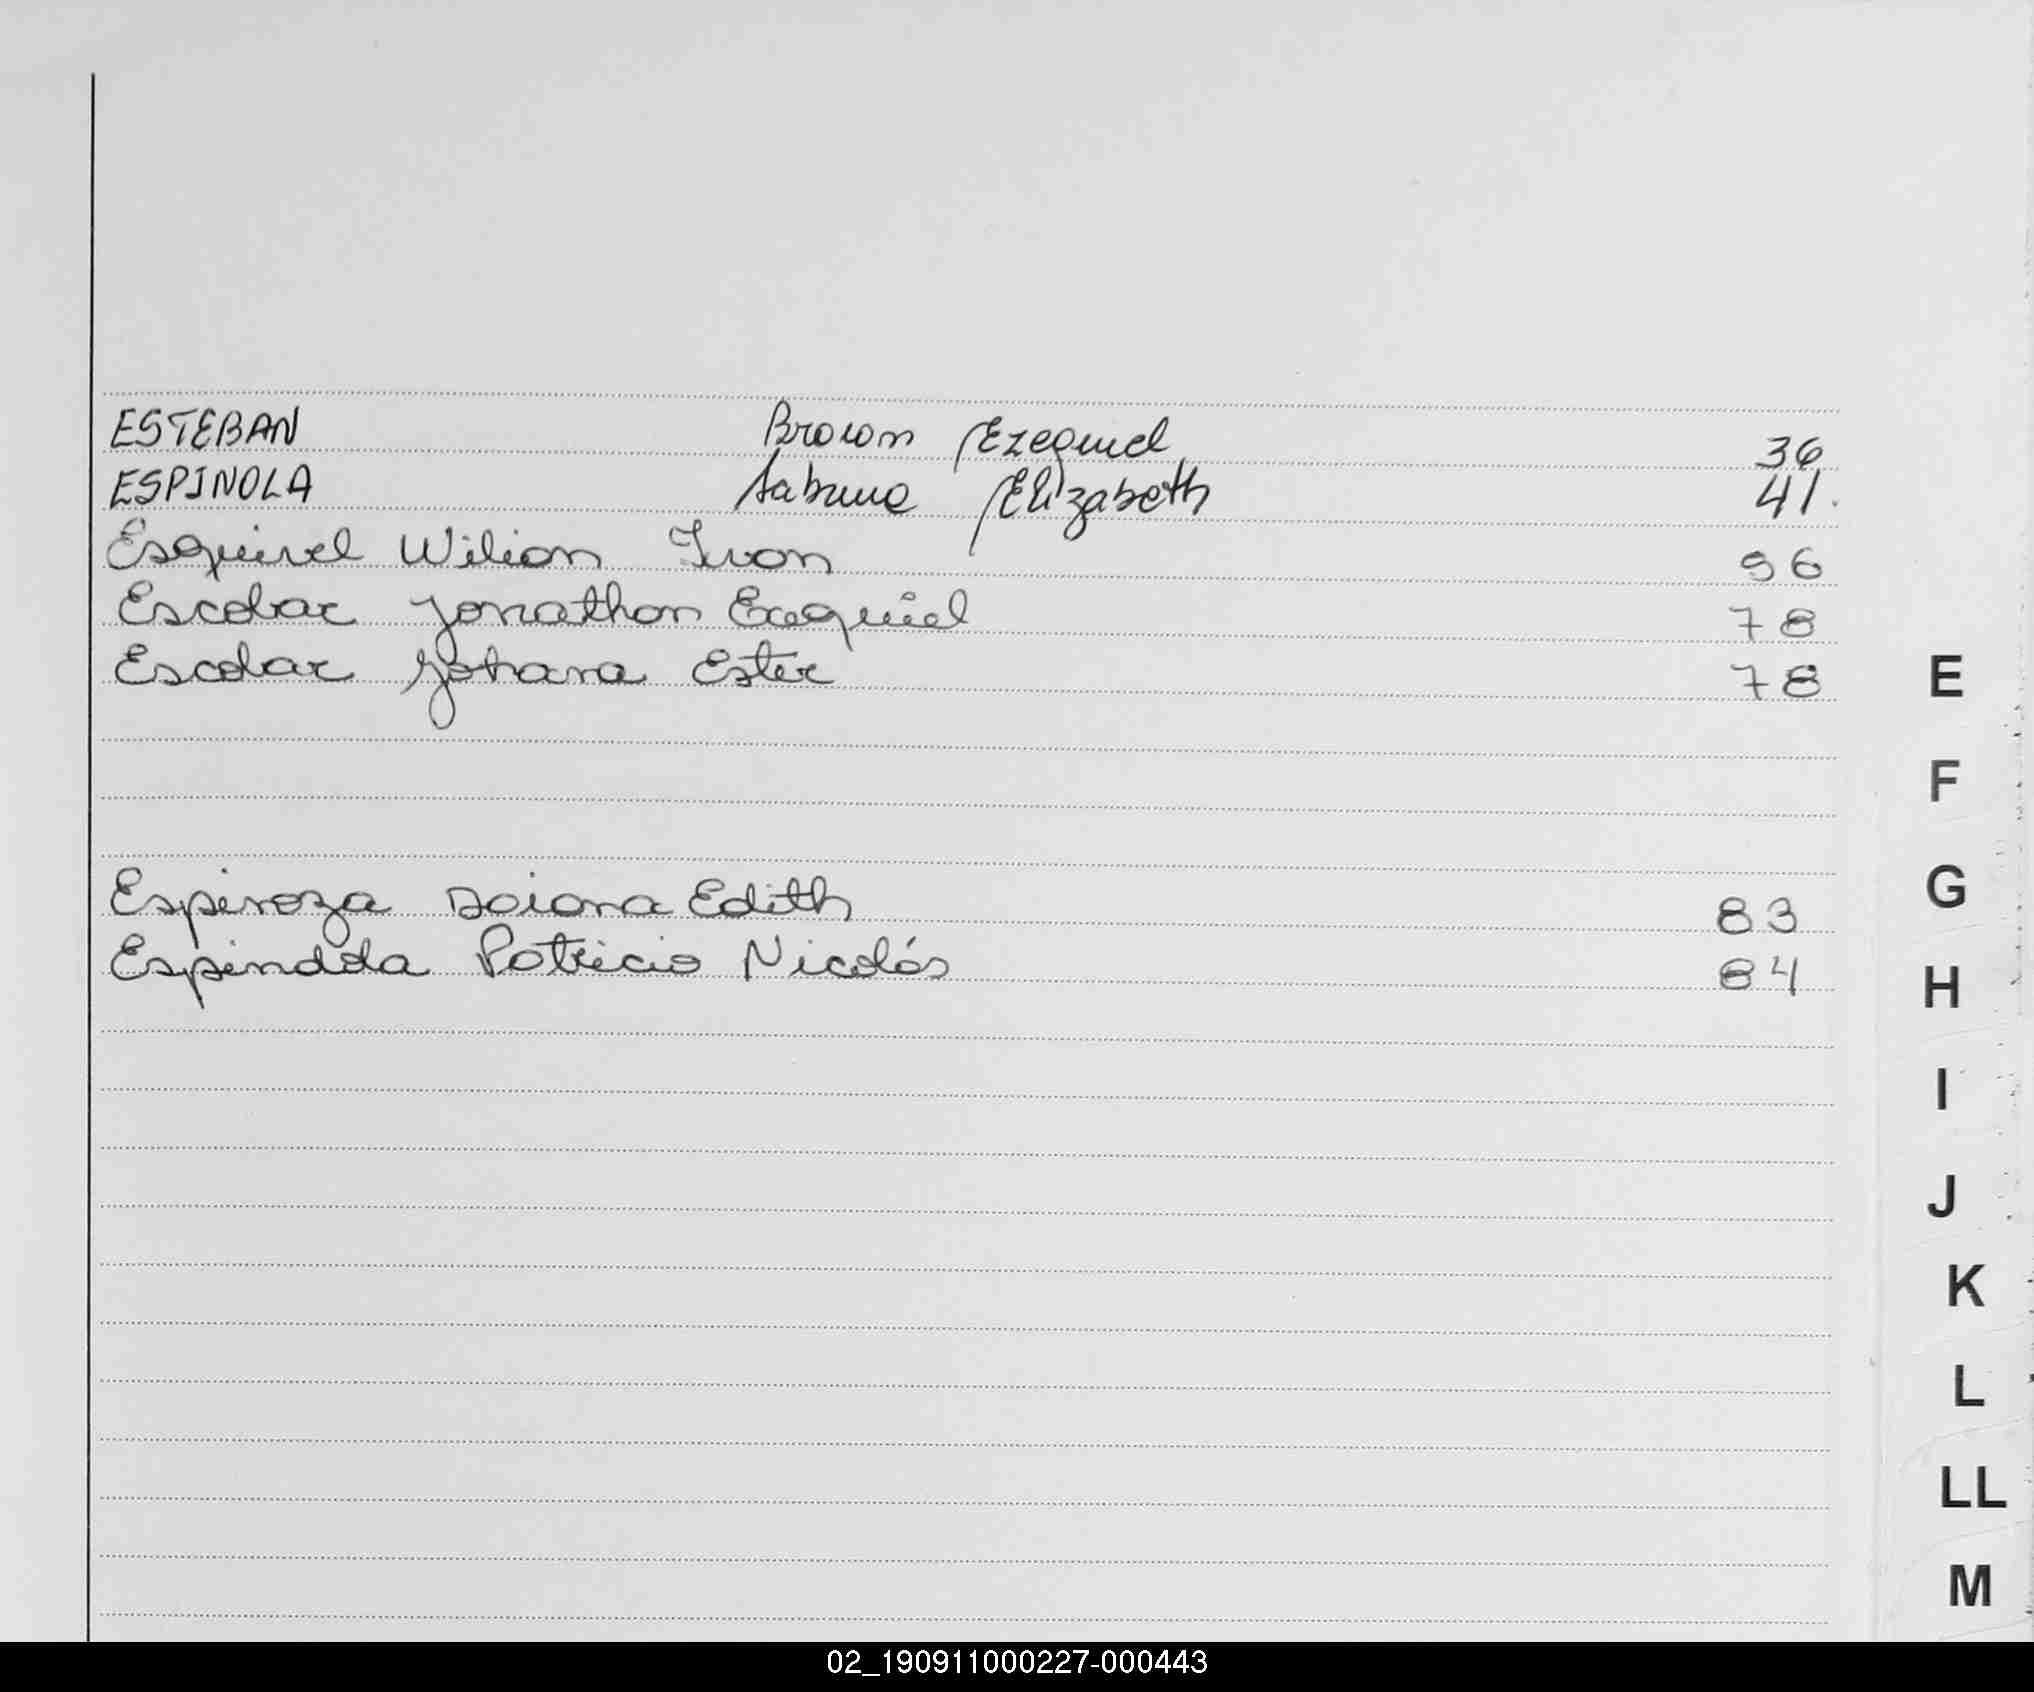 ESTEBAN Braian Ezequiel 36
ESPINOLA Sabrina Elizabeth 41.
Esquivel Wilian Ivan 96
Escobar Jonathan Ezequiel 78
Escobar Johana Ester 78
Espinoza Daiana Edith 83
Espindola Patricio Nicolás 84
E
F
G
H
I
J
K
L
LL
M
02_190911000227-000443